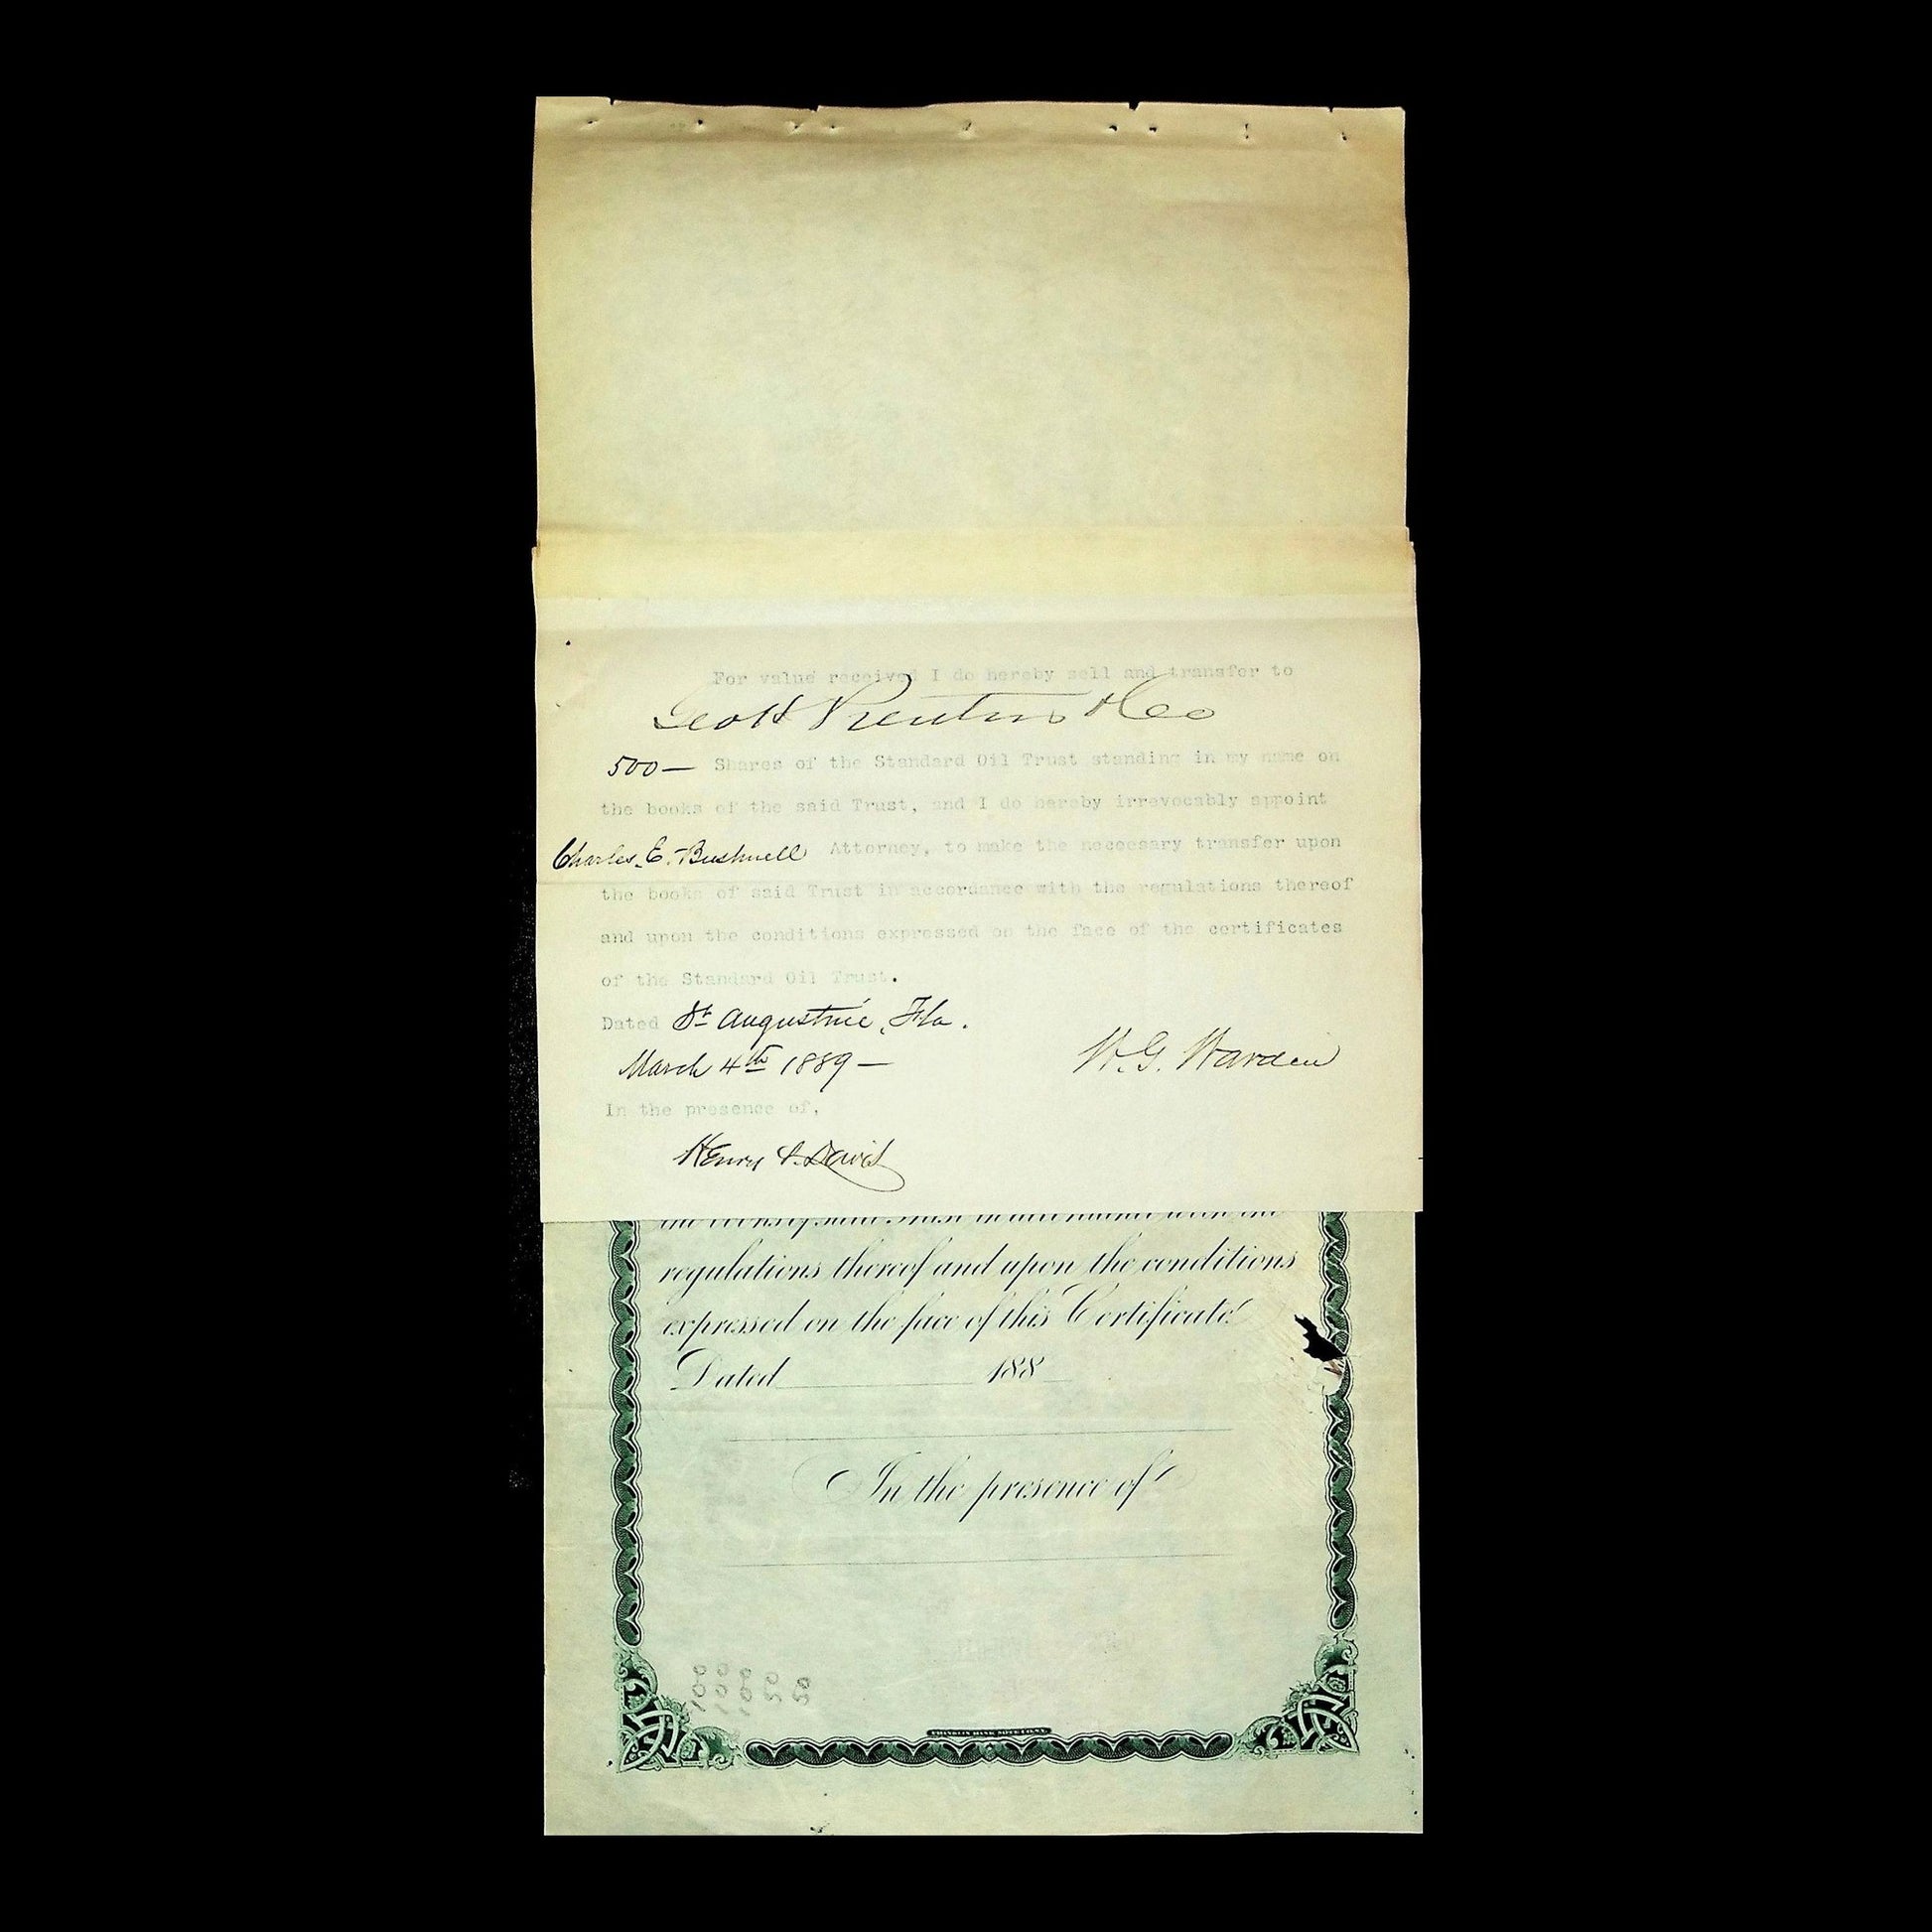 For value received I do hereby sell and transfer to
Geo H Prentiss & Co
500— Shares of the Standard Oil Trust standing in my name on
the books of the said Trust, and I do hereby irrevocably appoint
Charles E. Bushnell Attorney, to make the necessary transfer upon
the books of said Trust in accordance with the regulations thereof
and upon the conditions expressed on the face of the certificates
of the Standard Oil Trust.
Dated St Augustine, Fla.
March 4th 1889—
W. G. Warden
In the presence of,
Henry Davis
the books of said Trust in accordance with the
regulations thereof and upon the conditions
expressed on the face of this Certificate
Dated 188
In the presence of
FRANKLIN BANK NOTE